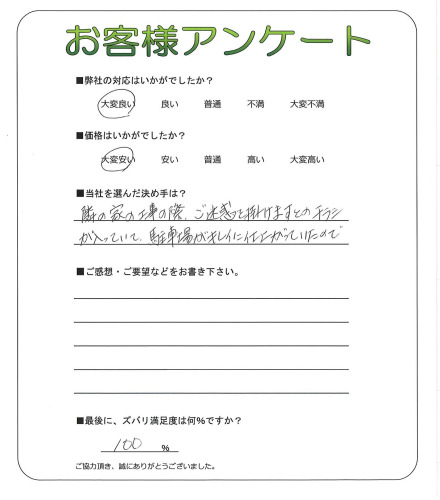 お客様アンケート
■弊社の対応はいかがでしたか？
大変良い 良い 普通 不満 大変不満
■価格はいかがでしたか？
大変安い 安い 普通 高い 大変高い
■当社を選んだ決め手は？
隣の家の工事の際、ご迷惑を掛けますとのチラシ
が入っていて、駐車場がキレイに仕上がっていたので
■ご感想・ご要望などをお書き下さい。
■最後に、ズバリ満足度は何%ですか？
100 %
ご協力頂き、誠にありがとうございました。